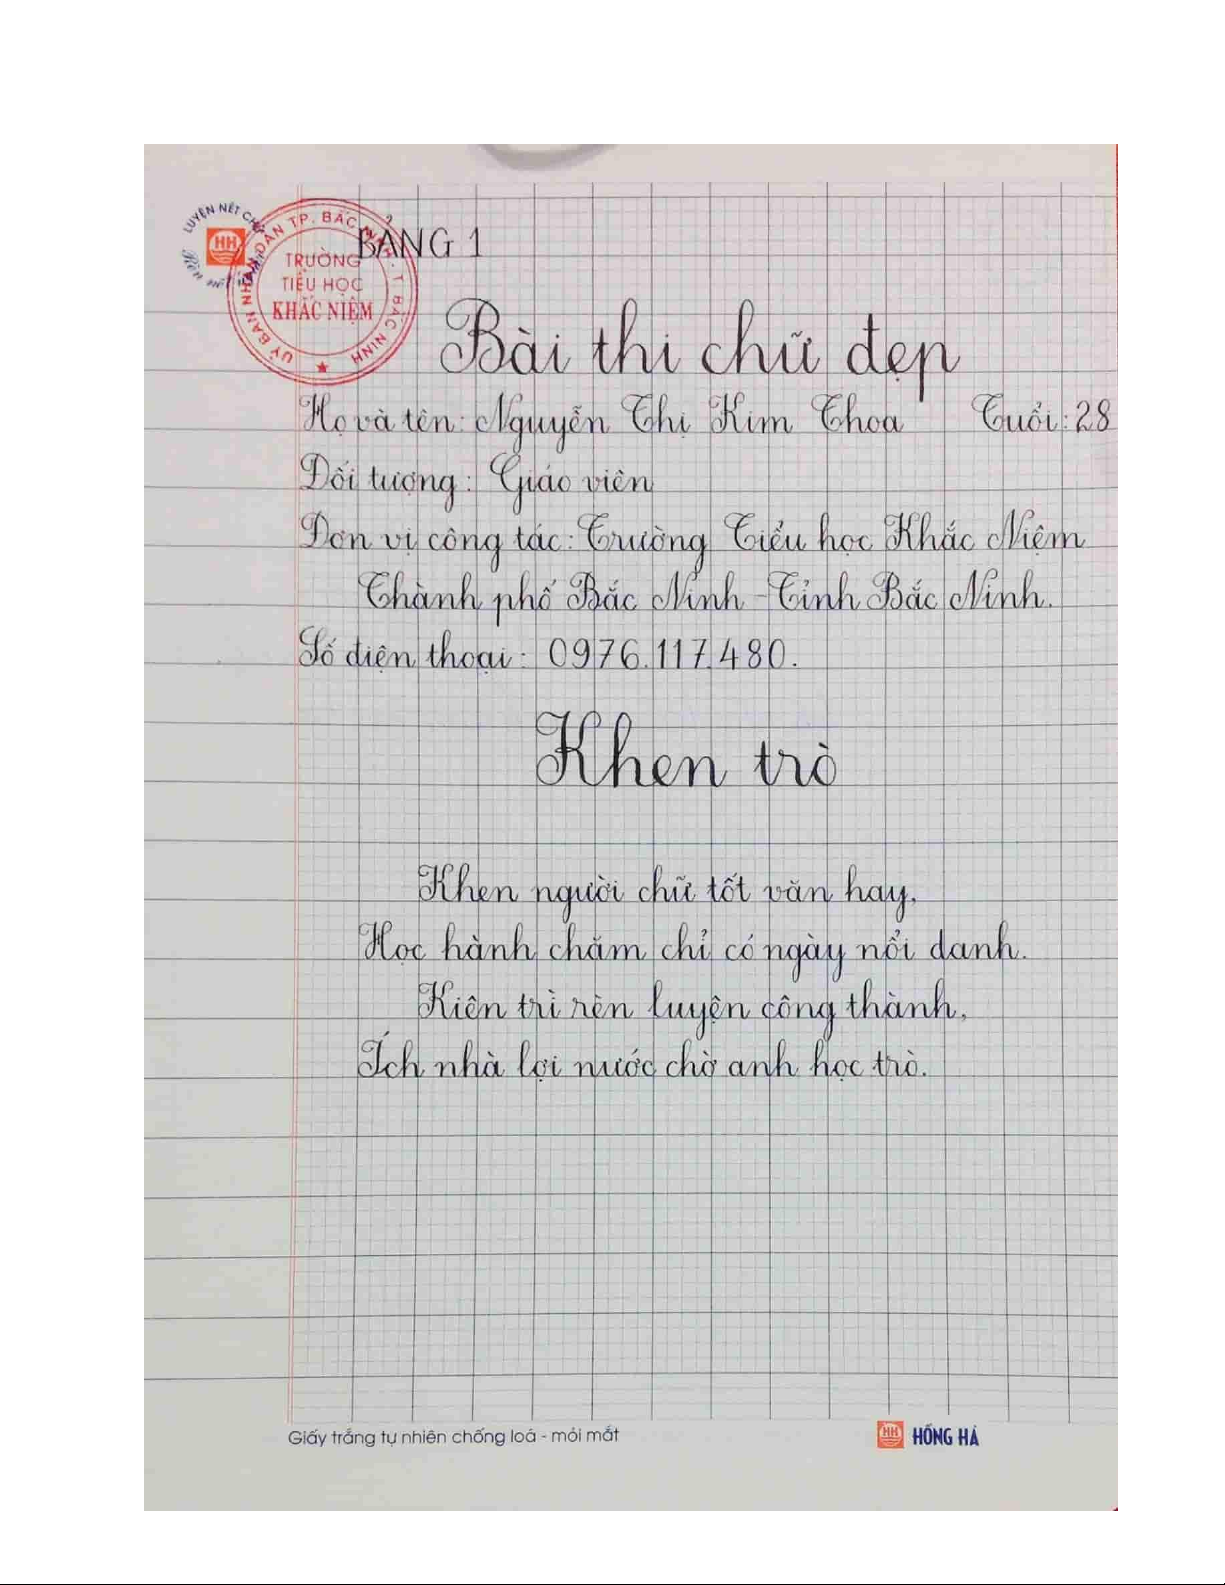 LUYỆN NÉT CHỮ
HH
UỶ BAN NHÂN DÂN TP. BẮC NINH - T. BẮC NINH
TRƯỜNG
TIỂU HỌC
KHẮC NIỆM
BẢNG 1
Bài thi chữ đẹp
Họ và tên: Nguyễn Thị Kim Thoa Tuổi: 28
Đối tượng: Giáo viên
Đơn vị công tác: Trường Tiểu học Khắc Niệm
Thành phố Bắc Ninh - Tỉnh Bắc Ninh.
Số điện thoại: 0976.117.480.
Khen trò
Khen người chữ tốt văn hay,
Học hành chăm chỉ có ngày nổi danh.
Kiên trì rèn luyện công thành,
Ích nhà lợi nước chờ anh học trò.
Giấy trắng tự nhiên chống loá - mỏi mắt
HH HỒNG HÀ